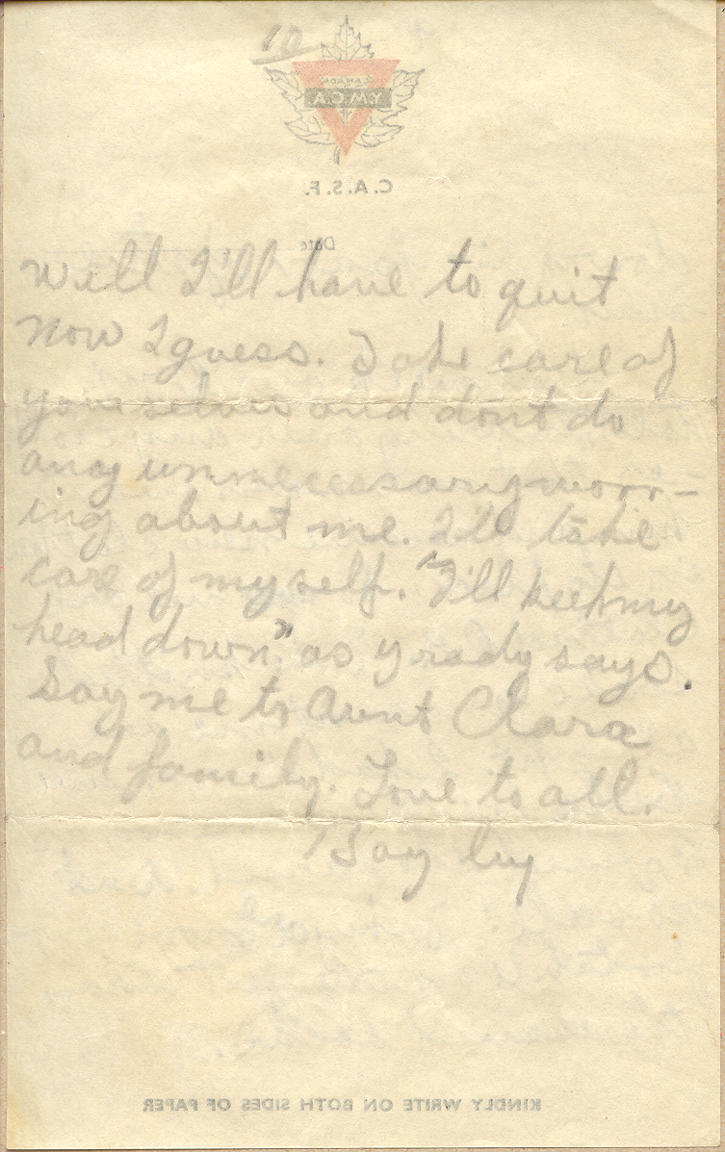 10
CANADA
YMCA
C.A.S.F.
Date
Well I'll have to quit
now I guess. Take care of
yourselves and dont do
any unnecessary worr-
ing about me. I'll take
care of myself. "I'll keep my
head down" as Grady says.
Say me to Aunt Clara
and family. Love to all.
KINDLY WRITE ON BOTH SIDES OF PAPER